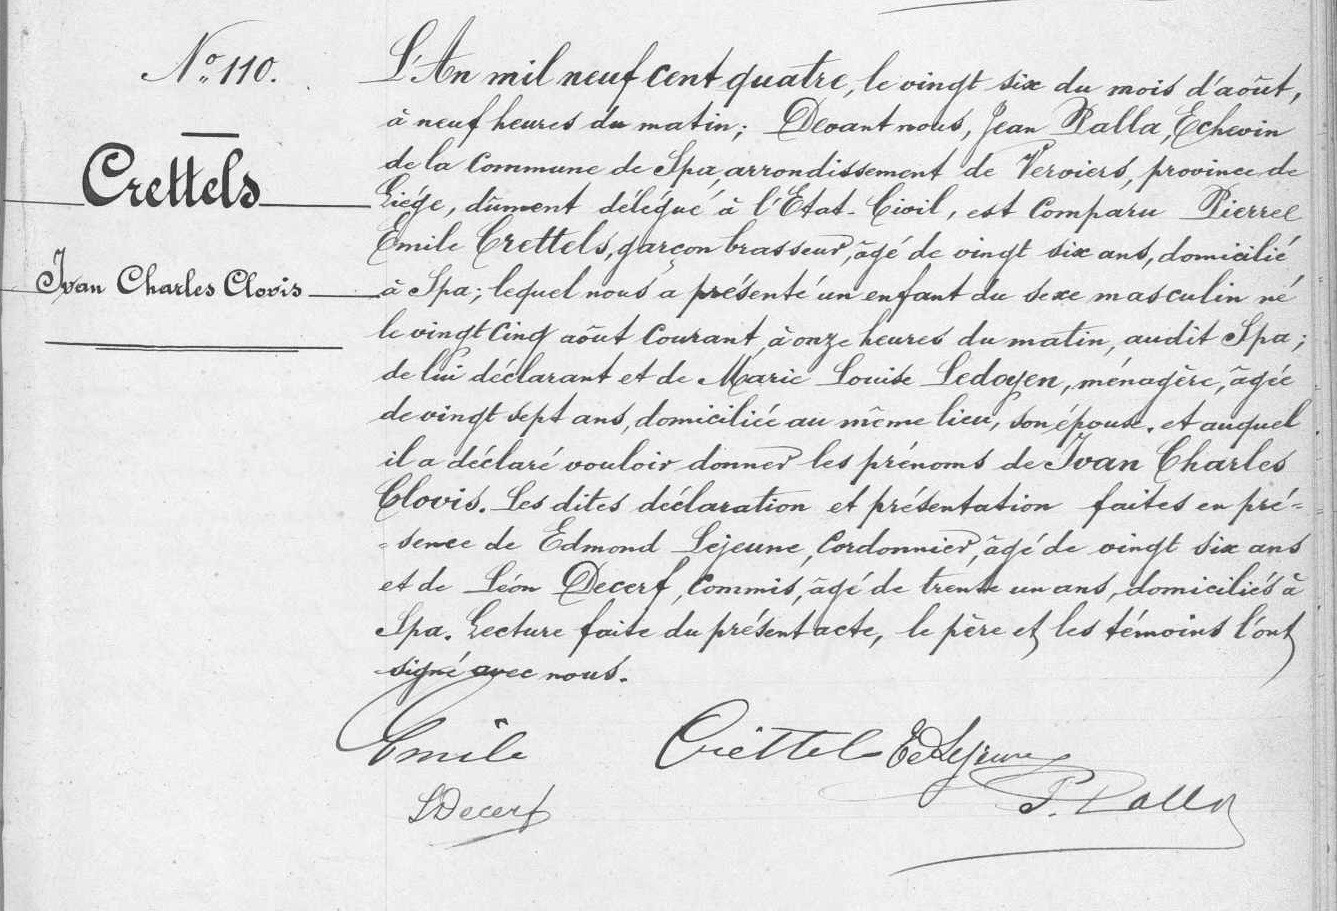 N° 110.
Crettels
Ivan Charles Clovis
L'An mil neuf cent quatre, le vingt six du mois d'août,
à neuf heures du matin; Devant nous, Jean Palla, Echevin
de la Commune de Spa, arrondissement de Verviers, province de
Liége, dûment délégué à l'Etat-Civil, est comparu Pierre
Emile Crettels, garçon brasseur, âgé de vingt six ans, domicilié
à Spa; lequel nous a présenté un enfant du sexe masculin né
le vingt cinq août courant, à onze heures du matin, audit Spa;
de lui déclarant et de Marie Louise Ledoyen, ménagère, âgée
de vingt sept ans, domiciliée au même lieu, son épouse. et auquel
il a déclaré vouloir donner les prénoms de Ivan Charles
Clovis. Les dites déclaration et présentation faites en pré-
-sence de Edmond Lejeune, Cordonnier, âgé de vingt six ans
et de Léon Decerf, Commis, âgé de trente un ans, domiciliés à
Spa. Lecture faite du présent acte, le père et les témoins l'ont
signé avec nous.
Emile Crettels Ed Lejeune
L Decerf J. Palla